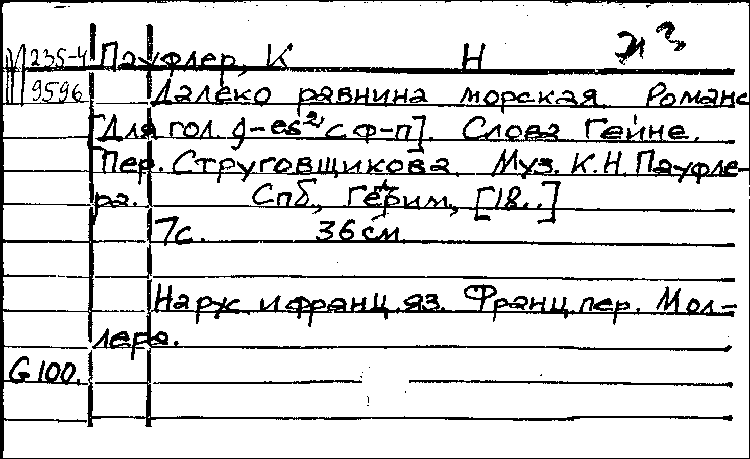 М 235-4 Пауфлер, К Н
9596 Далеко равнина морская. Романс
[Для гол. д-es² с ф-п]. Слова Гейне.
Пер. Струговщикова. Муз. К.Н. Пауфле-
ра. Спб, Герим, [18..]
7с. 36см
На рус. и франц. яз. Франц. пер. Мол-
лера.
G 100.